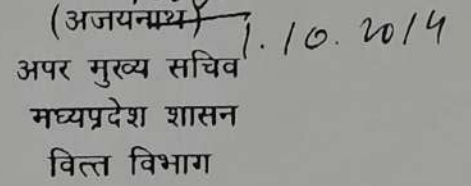 (अजयनाथ) 1.10.2014
अपर मुख्य सचिव
मध्यप्रदेश शासन
वित्त विभाग